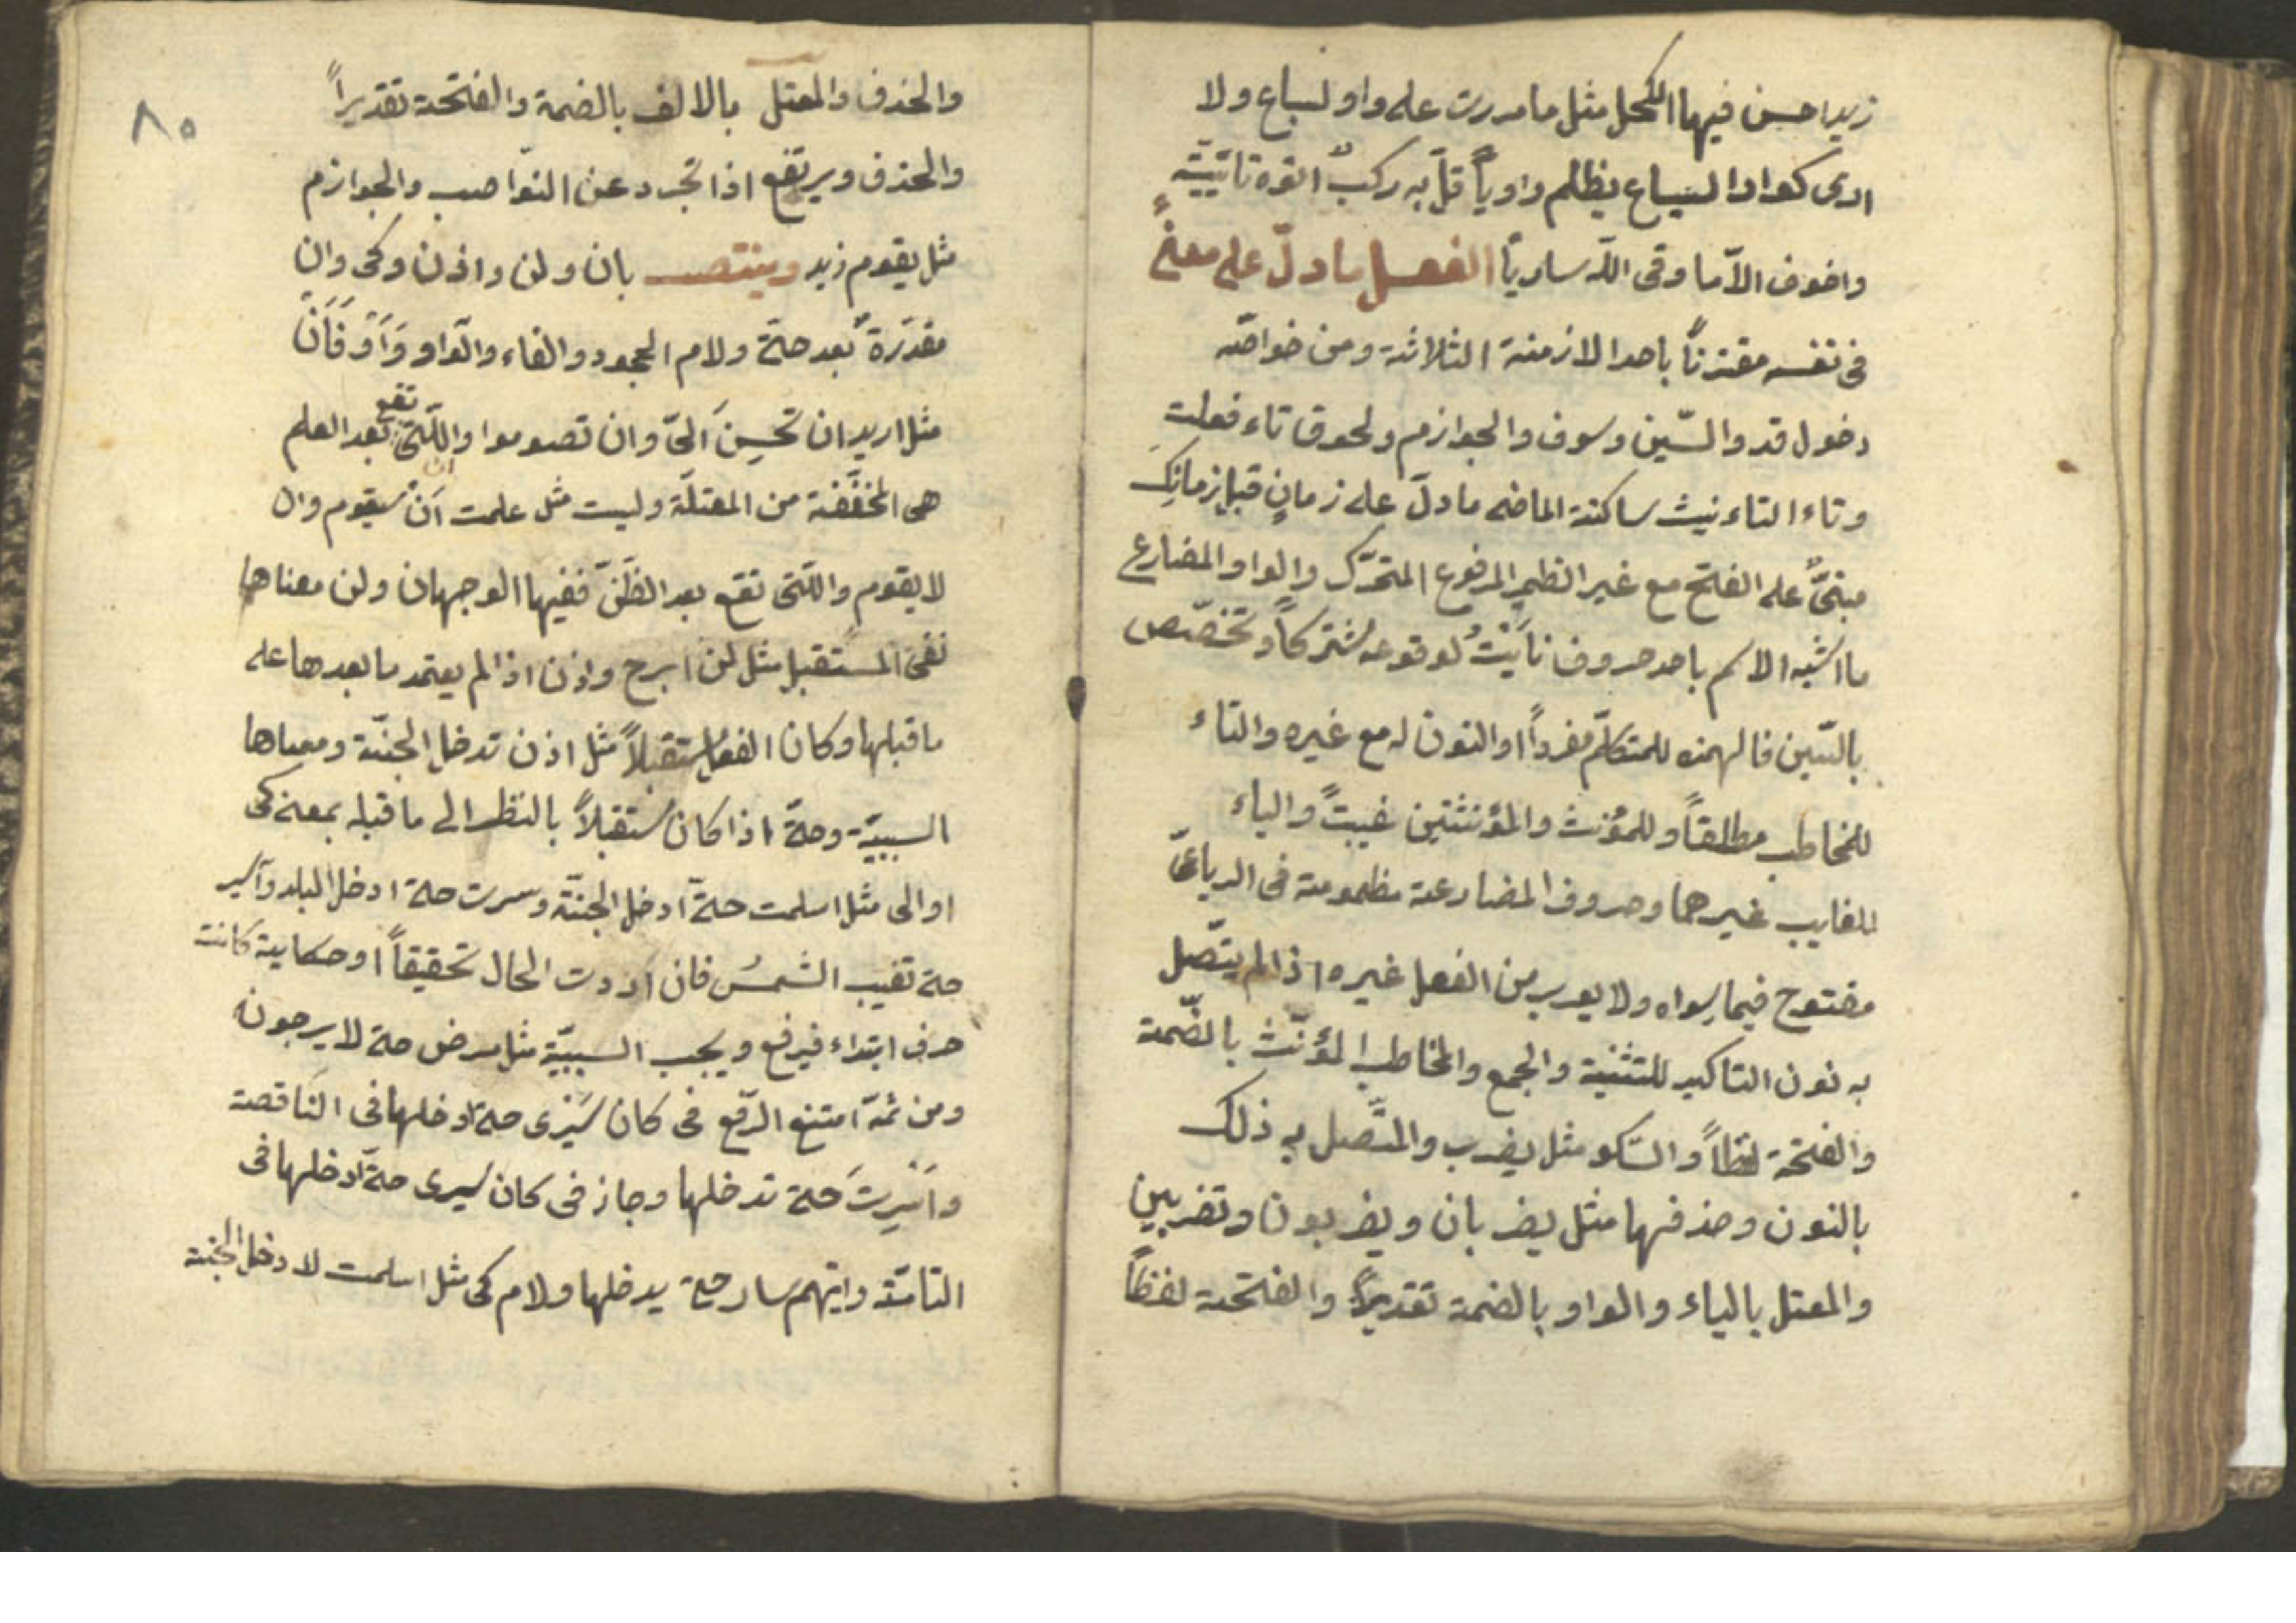 زيد احسن فيها الكحل مثل ما مررت على واو لسباع ولا
ارى كواد السباع يظلم وادياً قلّ به ركبٌ اتوه تائيّيّة
واخوف الاّ ما وقى اللّه سارياً الفعل ما دلّ على معنىً
فى نفسه مقترناً باحد الازمنة الثلاثة ومن خواصّه
دخول قد والسّين وسوف والجوازم ولحوق تاء فعلت
وتاء التاءنيث ساكنة الماضى ما دلّ على زمانٍ قبل زمانِكَ
مبنىٌّ على الفتح مع غير الظمير المرفوع المتحرّك والواو المضارع
ما اشبه الاسم باحد حروف نأيتُ لوقوعه مشتركاً وتخصّص
بالسّين فالهمزه للمتكلّم مفرداً اوالنون له مع غيره والتاء
للمخاطب مطلقاً وللمؤنث والمؤنثتين غيبتً والياء
للغايب غيرهما وحروف المضارعة مظمومة فى الرباعىّ
مفتوح فيما سواه ولا يعرب من الفعل غيره اذا لم يتّصل
به نون التاكيد للتثنية والجمع والمخاطب المؤنّث بالضّمة
والفتحة لفظاً والسّكو مثل يضرب والمتّصل به ذلك
بالنون وحذفها مثل يضربان ويضربون وتضربين
والمعتل بالياء والواو بالضمة تقديراً والفتحة لفظاً
٨٥
والحذف والمعتل بالالف بالضمة والفتحة تقديراً
والحذف ويرتفع اذا تجرد عن النّواصب والجوازم
مثل يقوم زيد وينتصب بان ولن واذن وكى وان
مقدّرة بعد حتّى ولام الجحود والفاء والواو وَاَوْ فَاَنْ
مثل اريد ان تحسِنَ اَلىّ وان تصوموا واللّتى تقع بعد العلم
هى المخفّفة من المعتلّة وليست مثل علمت اَنْ سيقوم وان
لا يقوم واللّتى تقع بعد الظّنّ ففيها الوجهان ولن معناها
نفى المستقبل مثل لن ابرح واذن اذا لم يعتمد ما بعدها على
ما قبلها وكان الفعل مستقبلاً مثل اذن تدخل الجنّة ومعناها
السببيّة وحتّى اذا كان مستقبلاً بالنظر الى ما قبله بمعنى كى
اوالى مثل اسلمت حتّى ادخل الجنّة وسرت حتى ادخل البلد وآسير
حتى تغيب الشمسُ فان اَردت الحال تحقيقاً او حكاية كانت
حرف ابتداء فيرفع ويجب السببيّة مثل مرض حتى لا يرجونه
ومن ثمّة امتنع الرّفع فى كان سَيْرى حتى ادخلها فى النّاقصة
واَسِرتَ حتى تدخلها وجاز فى كان سيرى حتّى ادخلها فى
التامّة وايّهم سار حتى يدخلها ولام كى مثل اسلمت لادخل الجنة